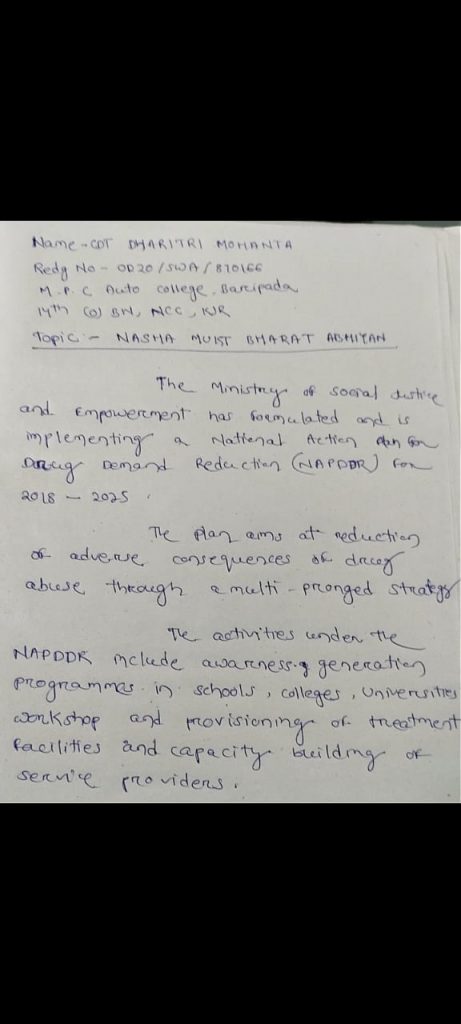 Name - CDT DHARITRI MOHANTA
Redg No - OD20/SWA/870166
M.P.C Auto college, Baripada
14th (O) BN, NCC, KJR
Topic :- NASHA MUKT BHARAT ABHIYAN
The Ministry of Social Justice
and Empowerment has formulated and is
implementing a National Action Plan for
Drug Demand Reduction (NAPDDR) for
2018 - 2025.
The plan aims at reduction
of adverse consequences of drug
abuse through a multi-pronged strategy
The activities under the
NAPDDR include awarness generation
programmes in schools, colleges, Universities
workshop and provisioning of treatment
facilities and capacity building of
service providers.